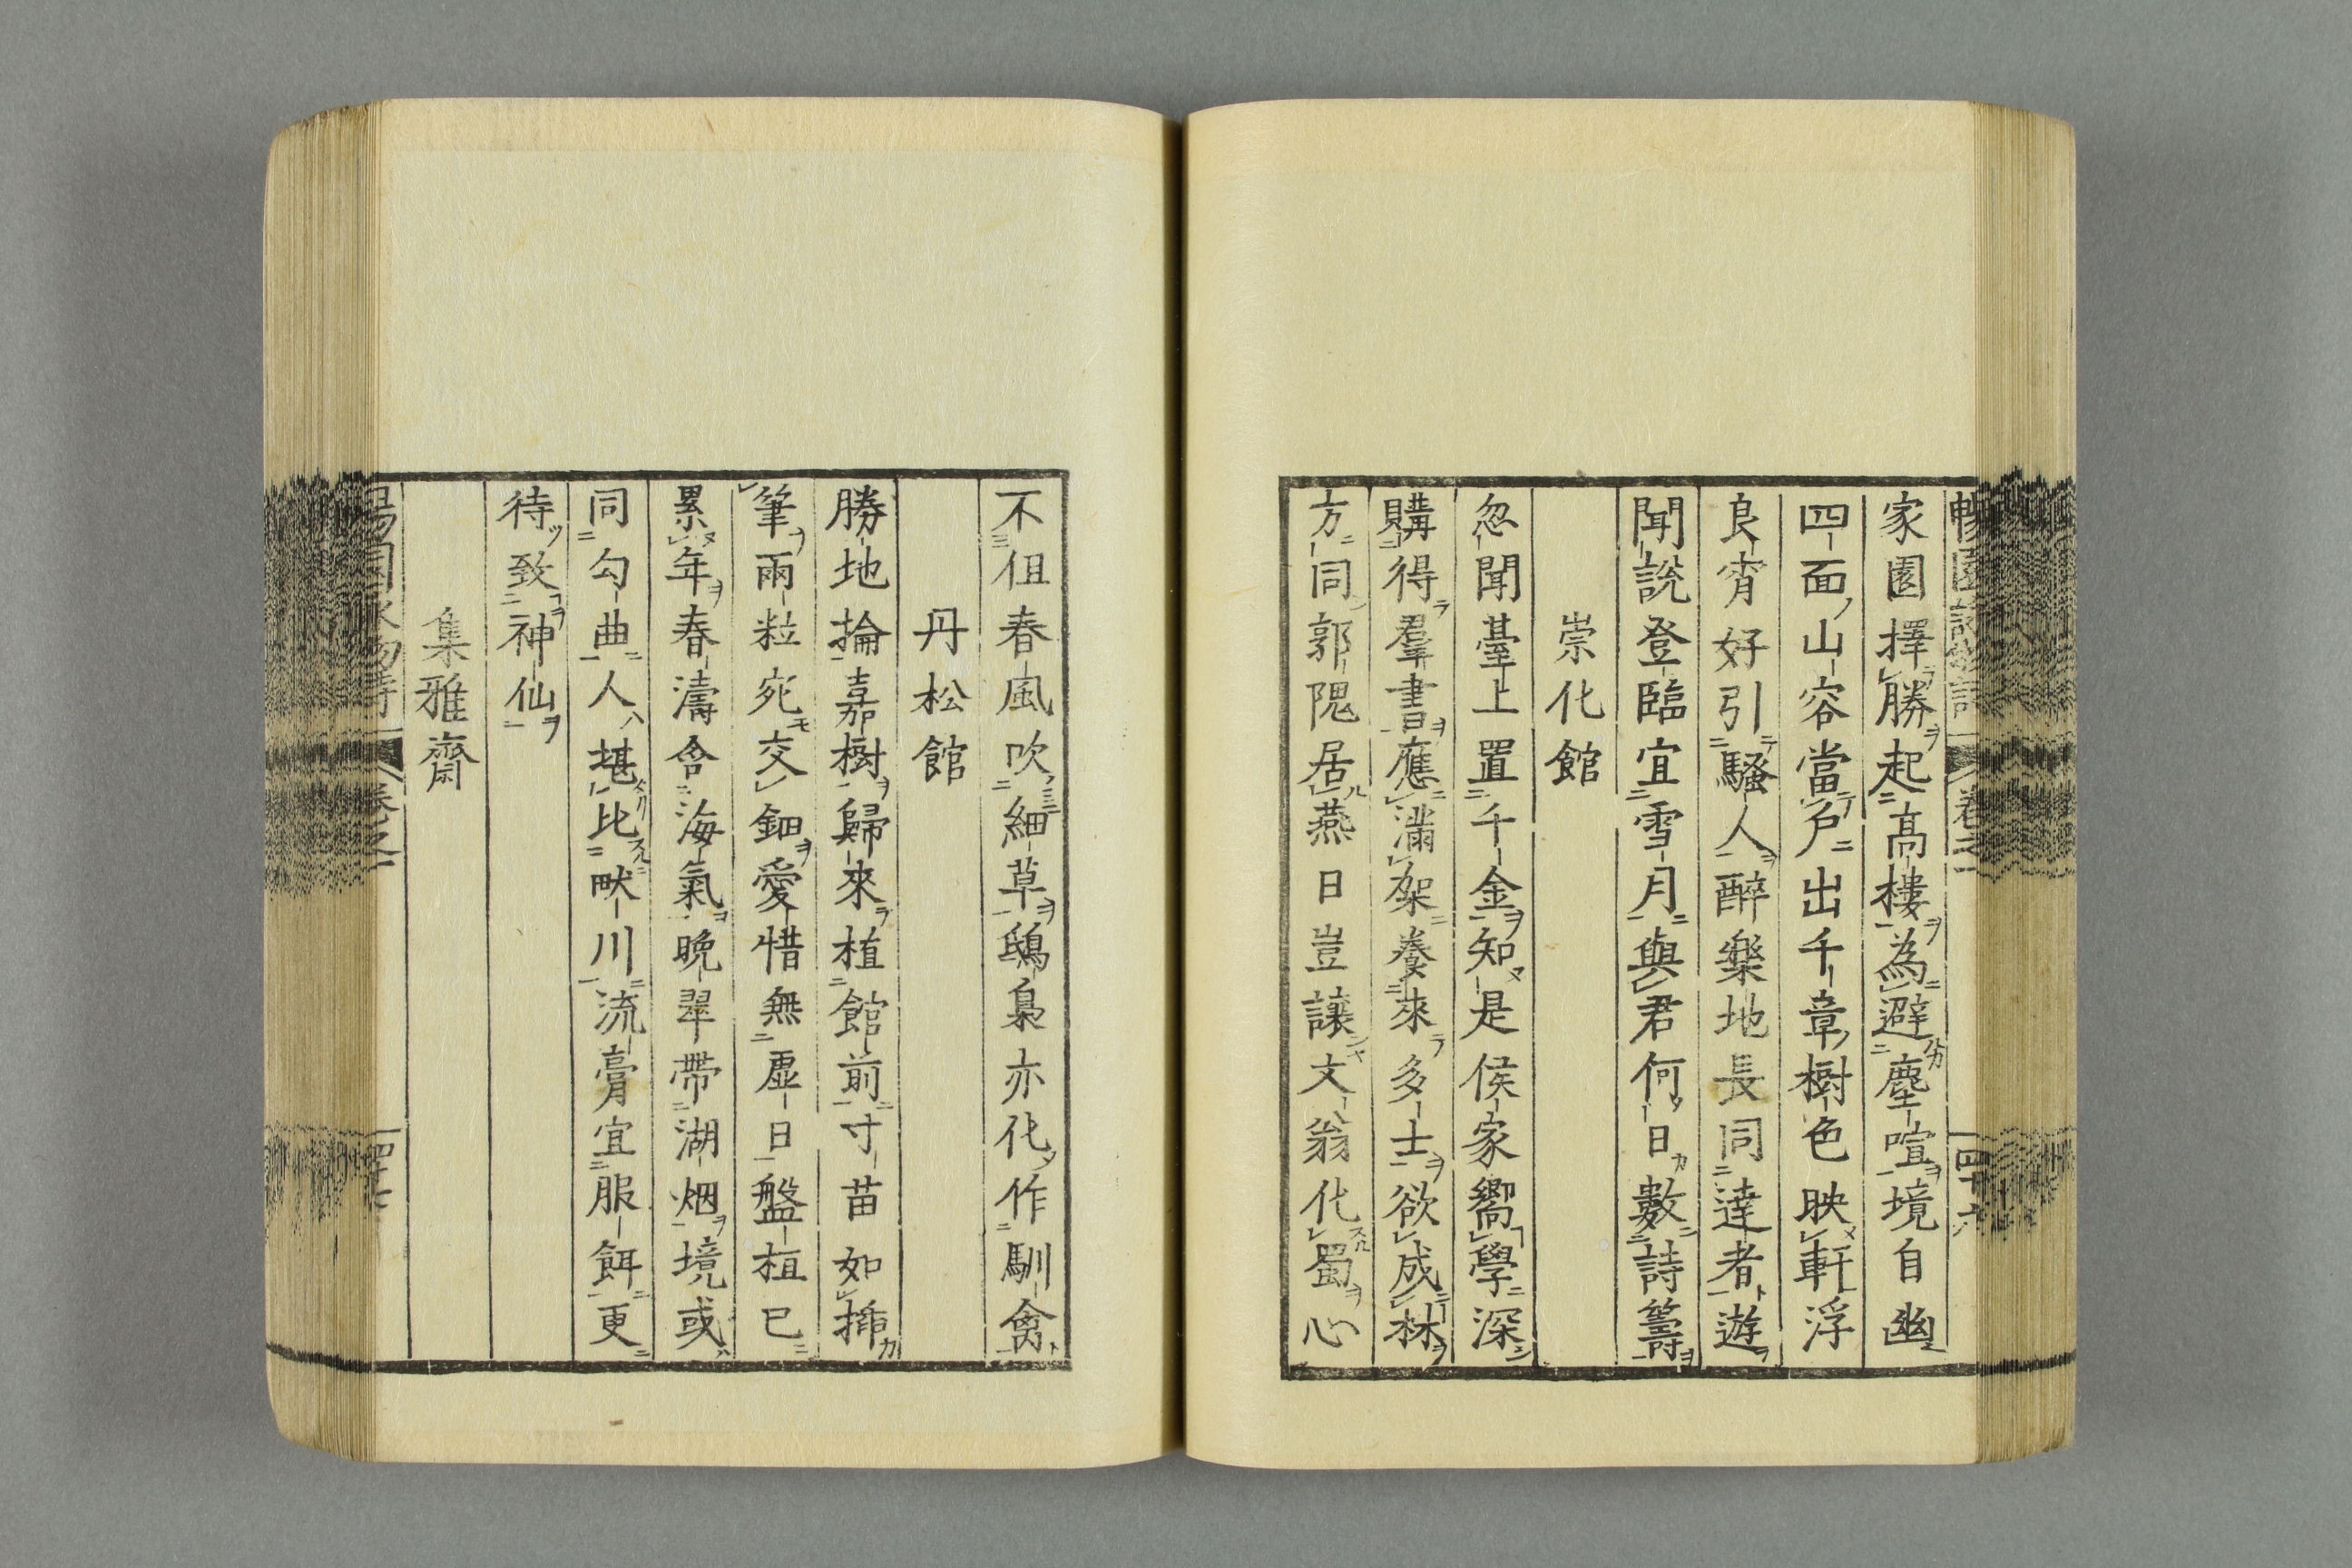 家園擇勝起高樓為避塵喧境自幽
四面山容當戶出千章樹色映軒浮
良宵好引騷人醉樂地長同達者遊
聞說登臨宜雪月與君何日數詩籌
崇化館
忽聞臺上置千金知是侯家嚮學深
購得羣書應滿架養來多士欲成林
方同郭隗居燕日豈讓文翁化蜀心
不但春風吹細草鴟梟亦化作馴禽
丹松館
勝地掄嘉樹歸來植館前寸苗如揷
筆雨粒宛交鈿愛惜無虛日盤桓已
累年春濤含海氣晚翠帶湖烟境或
同勾曲人堪比畎川流膏宜服餌更
待致神仙
集雅齋